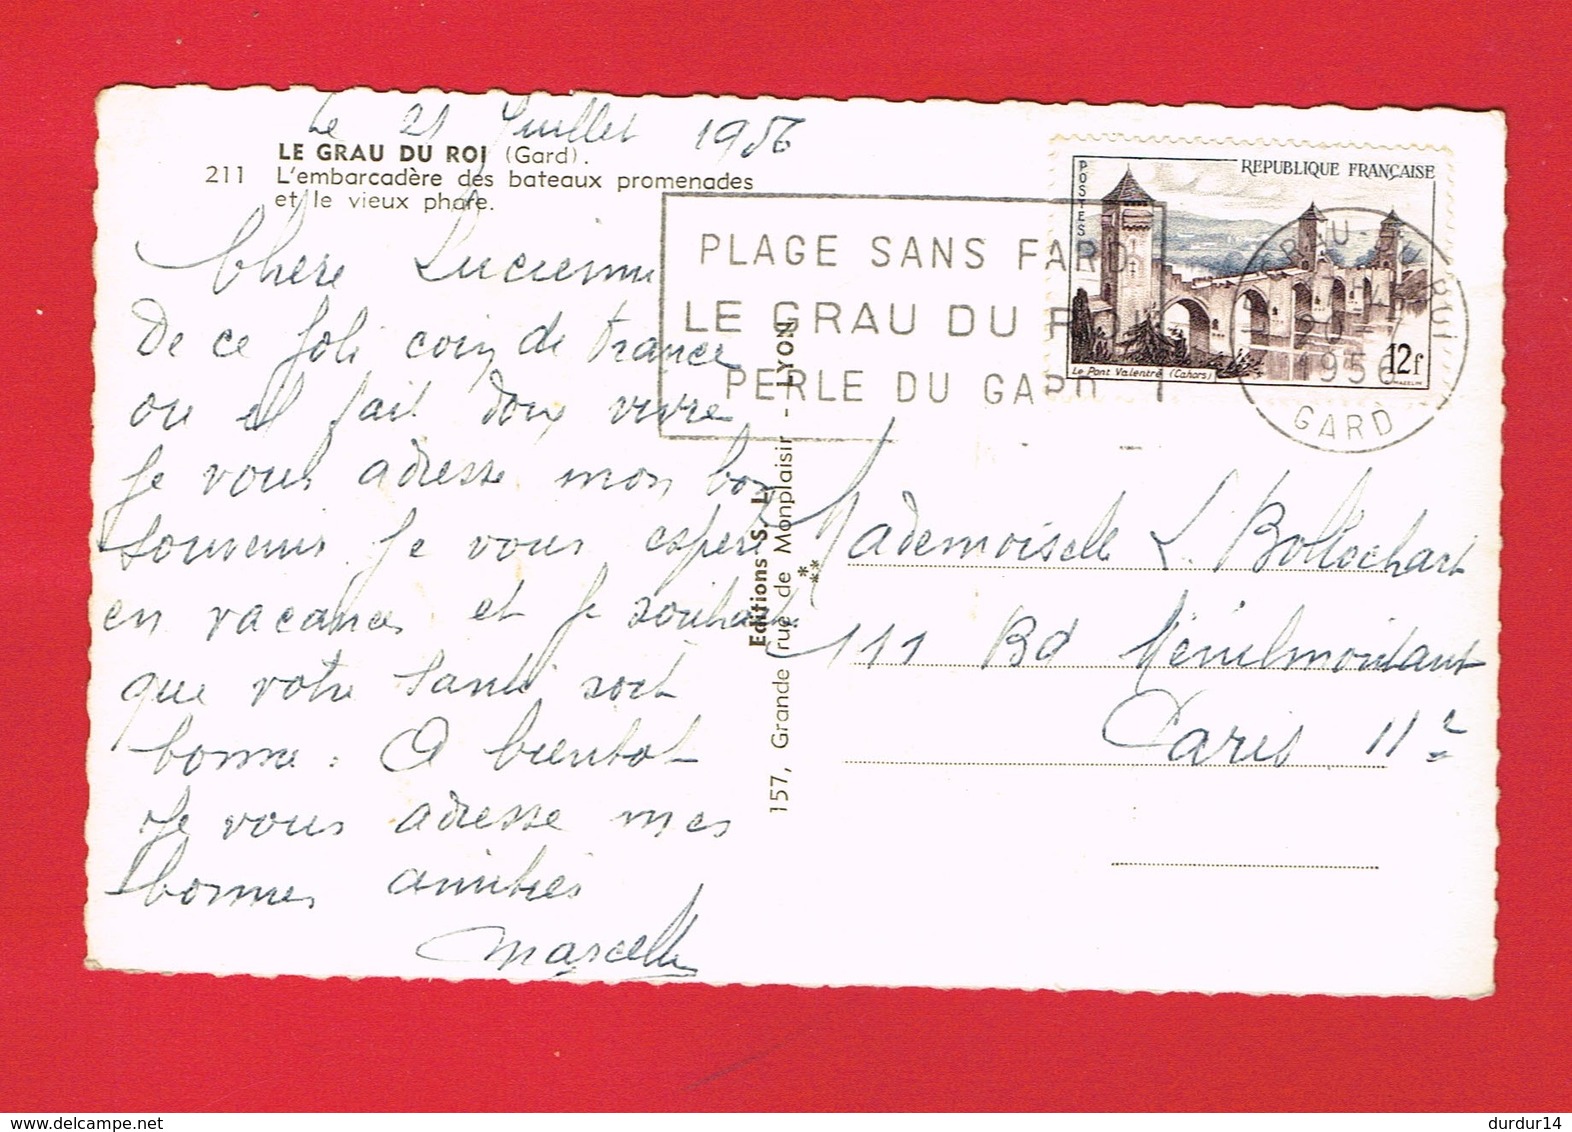 Le 21 Juillet 1956
LE GRAU DU ROI (Gard).
211 L'embarcadère des bateaux promenades
et le vieux phare.
Chere Lucienne
De ce Joli coin de France
ou il fait doux vivre
Je vous adresse mon bon
souvenir Je vous espere
en vacances et Je souhaite
que votre santé soit
bonne. A bientot
Je vous adresse mes
bonnes amitiés
Marcelle
Editions S. L.
157, Grande rue de Monplaisir - LYON
PLAGE SANS FARD
LE GRAU DU ROI
PERLE DU GARD
POSTES
REPUBLIQUE FRANÇAISE
Le Pont Valentré (Cahors)
12f
MAZELIN
GRAU DU ROI
20 - 7
1956
GARD
Mademoiselle L. Bollochart
111 Bd Ménilmontant
Paris 11e
durdur14